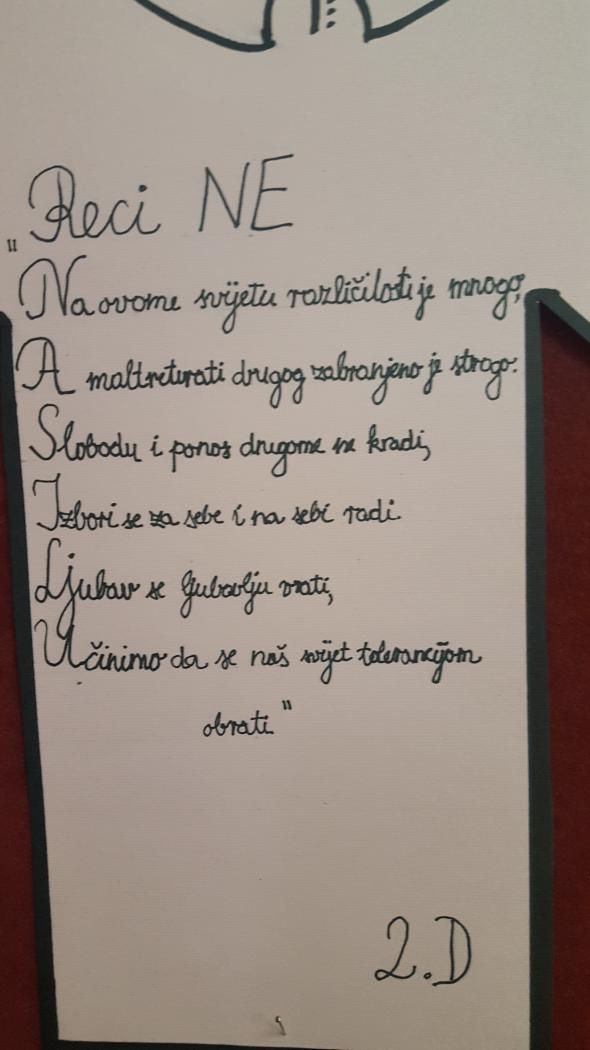 „Reci NE
Na ovome svijetu različitosti je mnogo,
A maltretirati drugog zabranjeno je strogo.
Slobodu i ponos drugome ne kradi,
Izbori se za sebe i na sebi radi.
Ljubav se ljubavlju vrati,
Učinimo da se naš svijet tolerancijom
obrati"
2.D